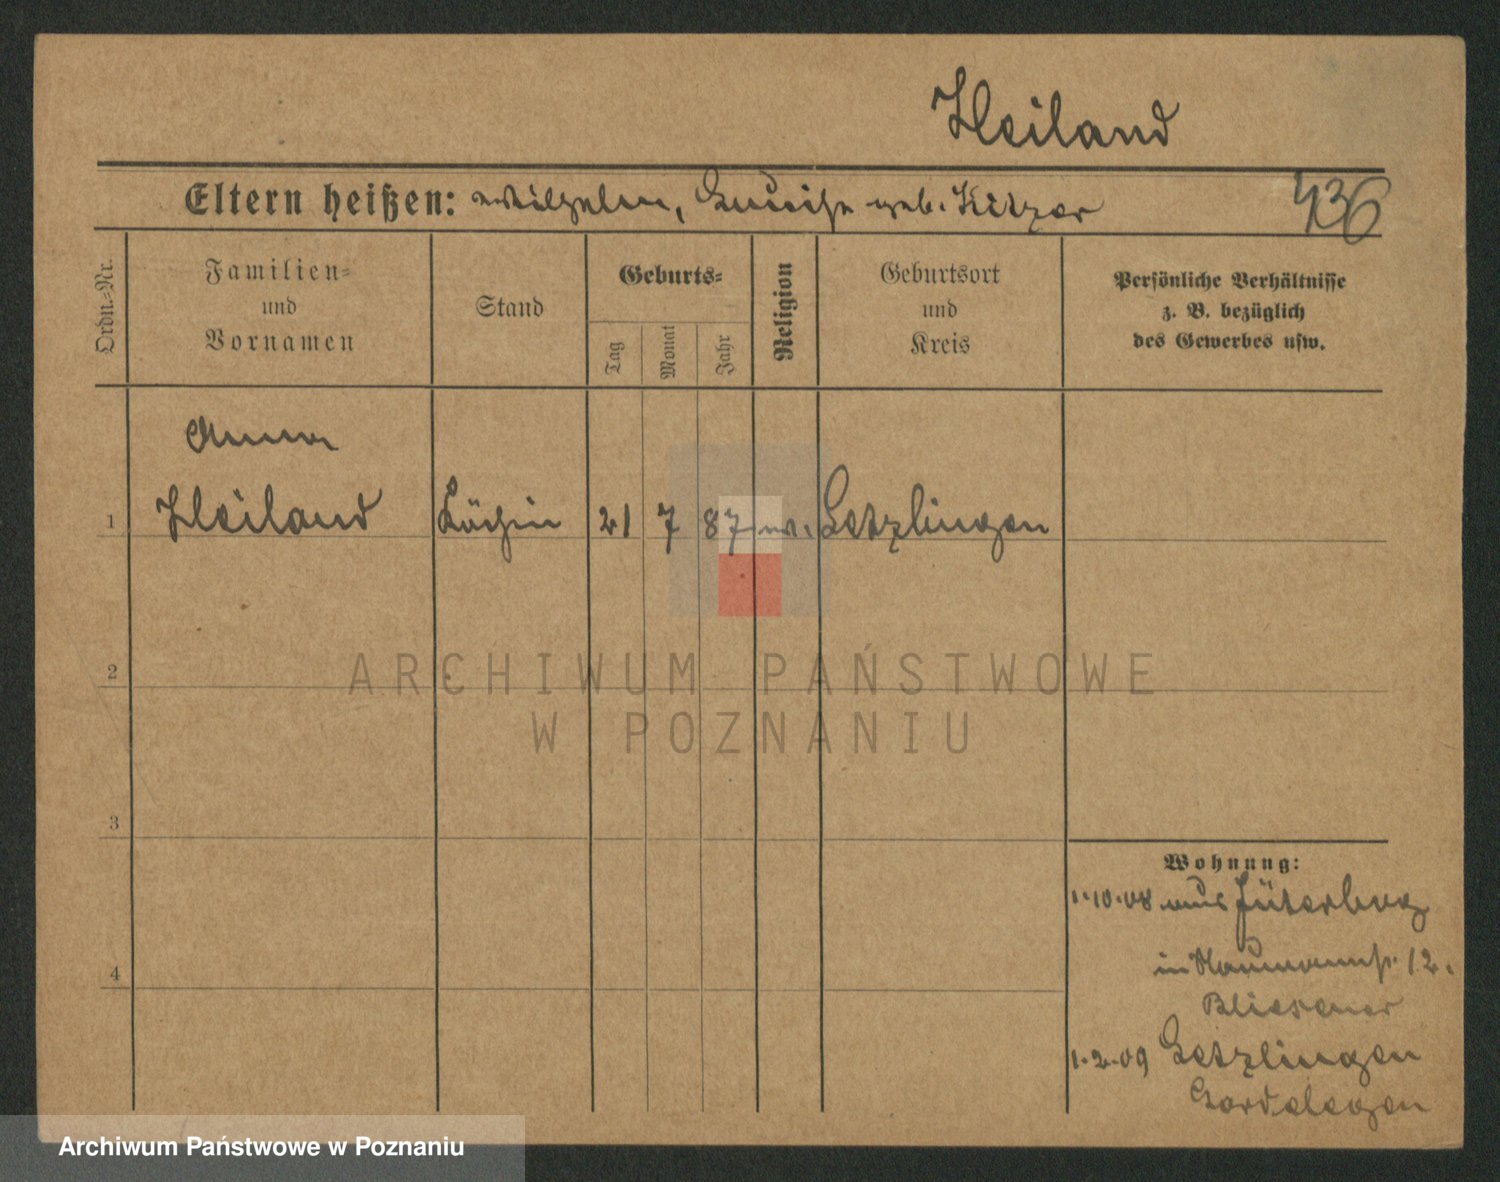 Heiland
Eltern heißen: Wilhelm, Luise geb. Kitzer
436
Ordn.=Nr.
Familien=
und
Vornamen
Stand
Geburts=
Tag
Monat
Jahr
Religion
Geburtsort
und
Kreis
Persönliche Verhältnisse
z. B. bezüglich
des Gewerbes usw.
Anna
1 Heiland Köchin 21 7 87 ev. Letzlingen
2
3
4
Wohnung:
1.10.08 aus Jüterbog
in Naumannstr. 12.
Bliesener
1.2.09 Letzlingen
Gardelegen
ARCHIWUM PAŃSTWOWE
W POZNANIU
Archiwum Państwowe w Poznaniu